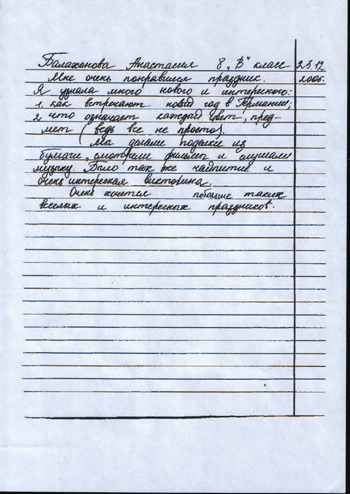 Балахонова Анастасия 8 „В" класс 25.12.
Мне очень понравился праздник. 2006.
Я узнала много нового и интересного:
1. как встречают новый год в Германии;
2 что означает каждый цвет, пред-
мет (ведь все не просто).
Мы делали поделки из
бумаги, смотрели фильмы и слушали
музыку. Было так же чаепитие и
очень интересная викторина.
Очень хочется побольше таких
веселых и интересных праздников.